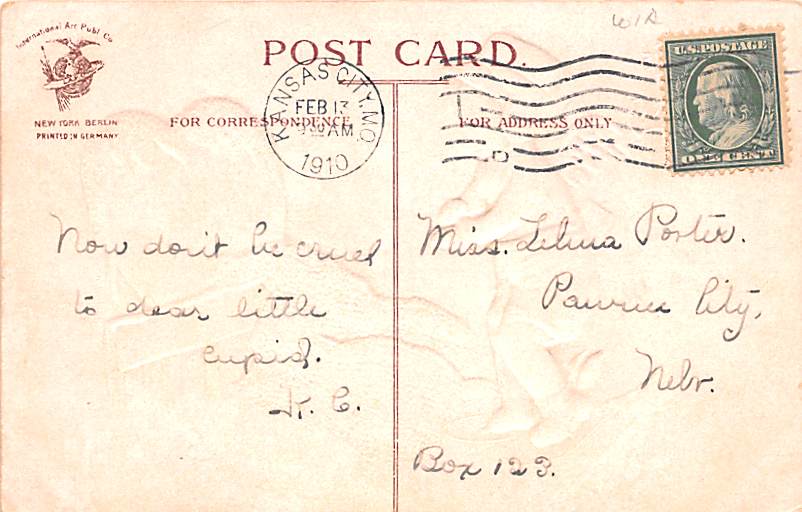 W/R
International Art Publ. Co.
NEW YORK BERLIN
PRINTED IN GERMANY
POST CARD.
KANSAS CITY, MO.
FEB 13
AM
1910
U.S. POSTAGE
ONE CENT
FOR CORRESPONDENCE
FOR ADDRESS ONLY
Now don't be cruel
to dear little
cupid.
K. C.
Miss. Zelma Porter.
Pawnee City,
Nebr.
Box 123.